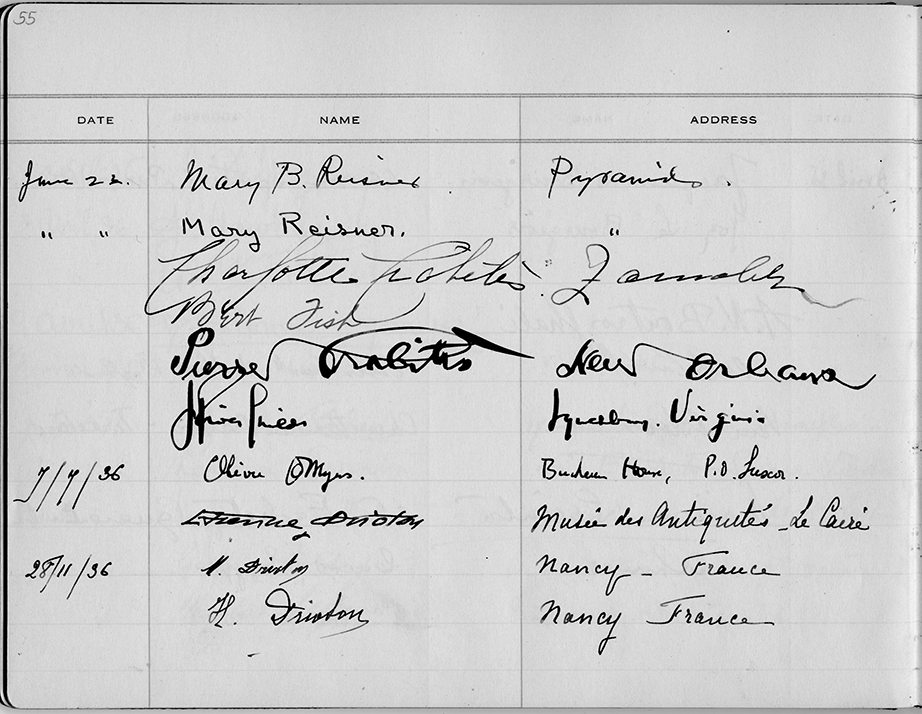 55
DATE NAME ADDRESS
June 22. Mary B. Reisner Pyramids.
" " Mary Reisner. "
Charlotte Crabitès.
Bert Fish
Pierre Crabitès New Orleans
Lynchburg. Virginia
7/7/36 Oliver Myers. House, P.O. Luxor.
Drioton Musée des Antiquités - Le Caire
28/11/36 Drioton Nancy - France
H. Drioton Nancy France